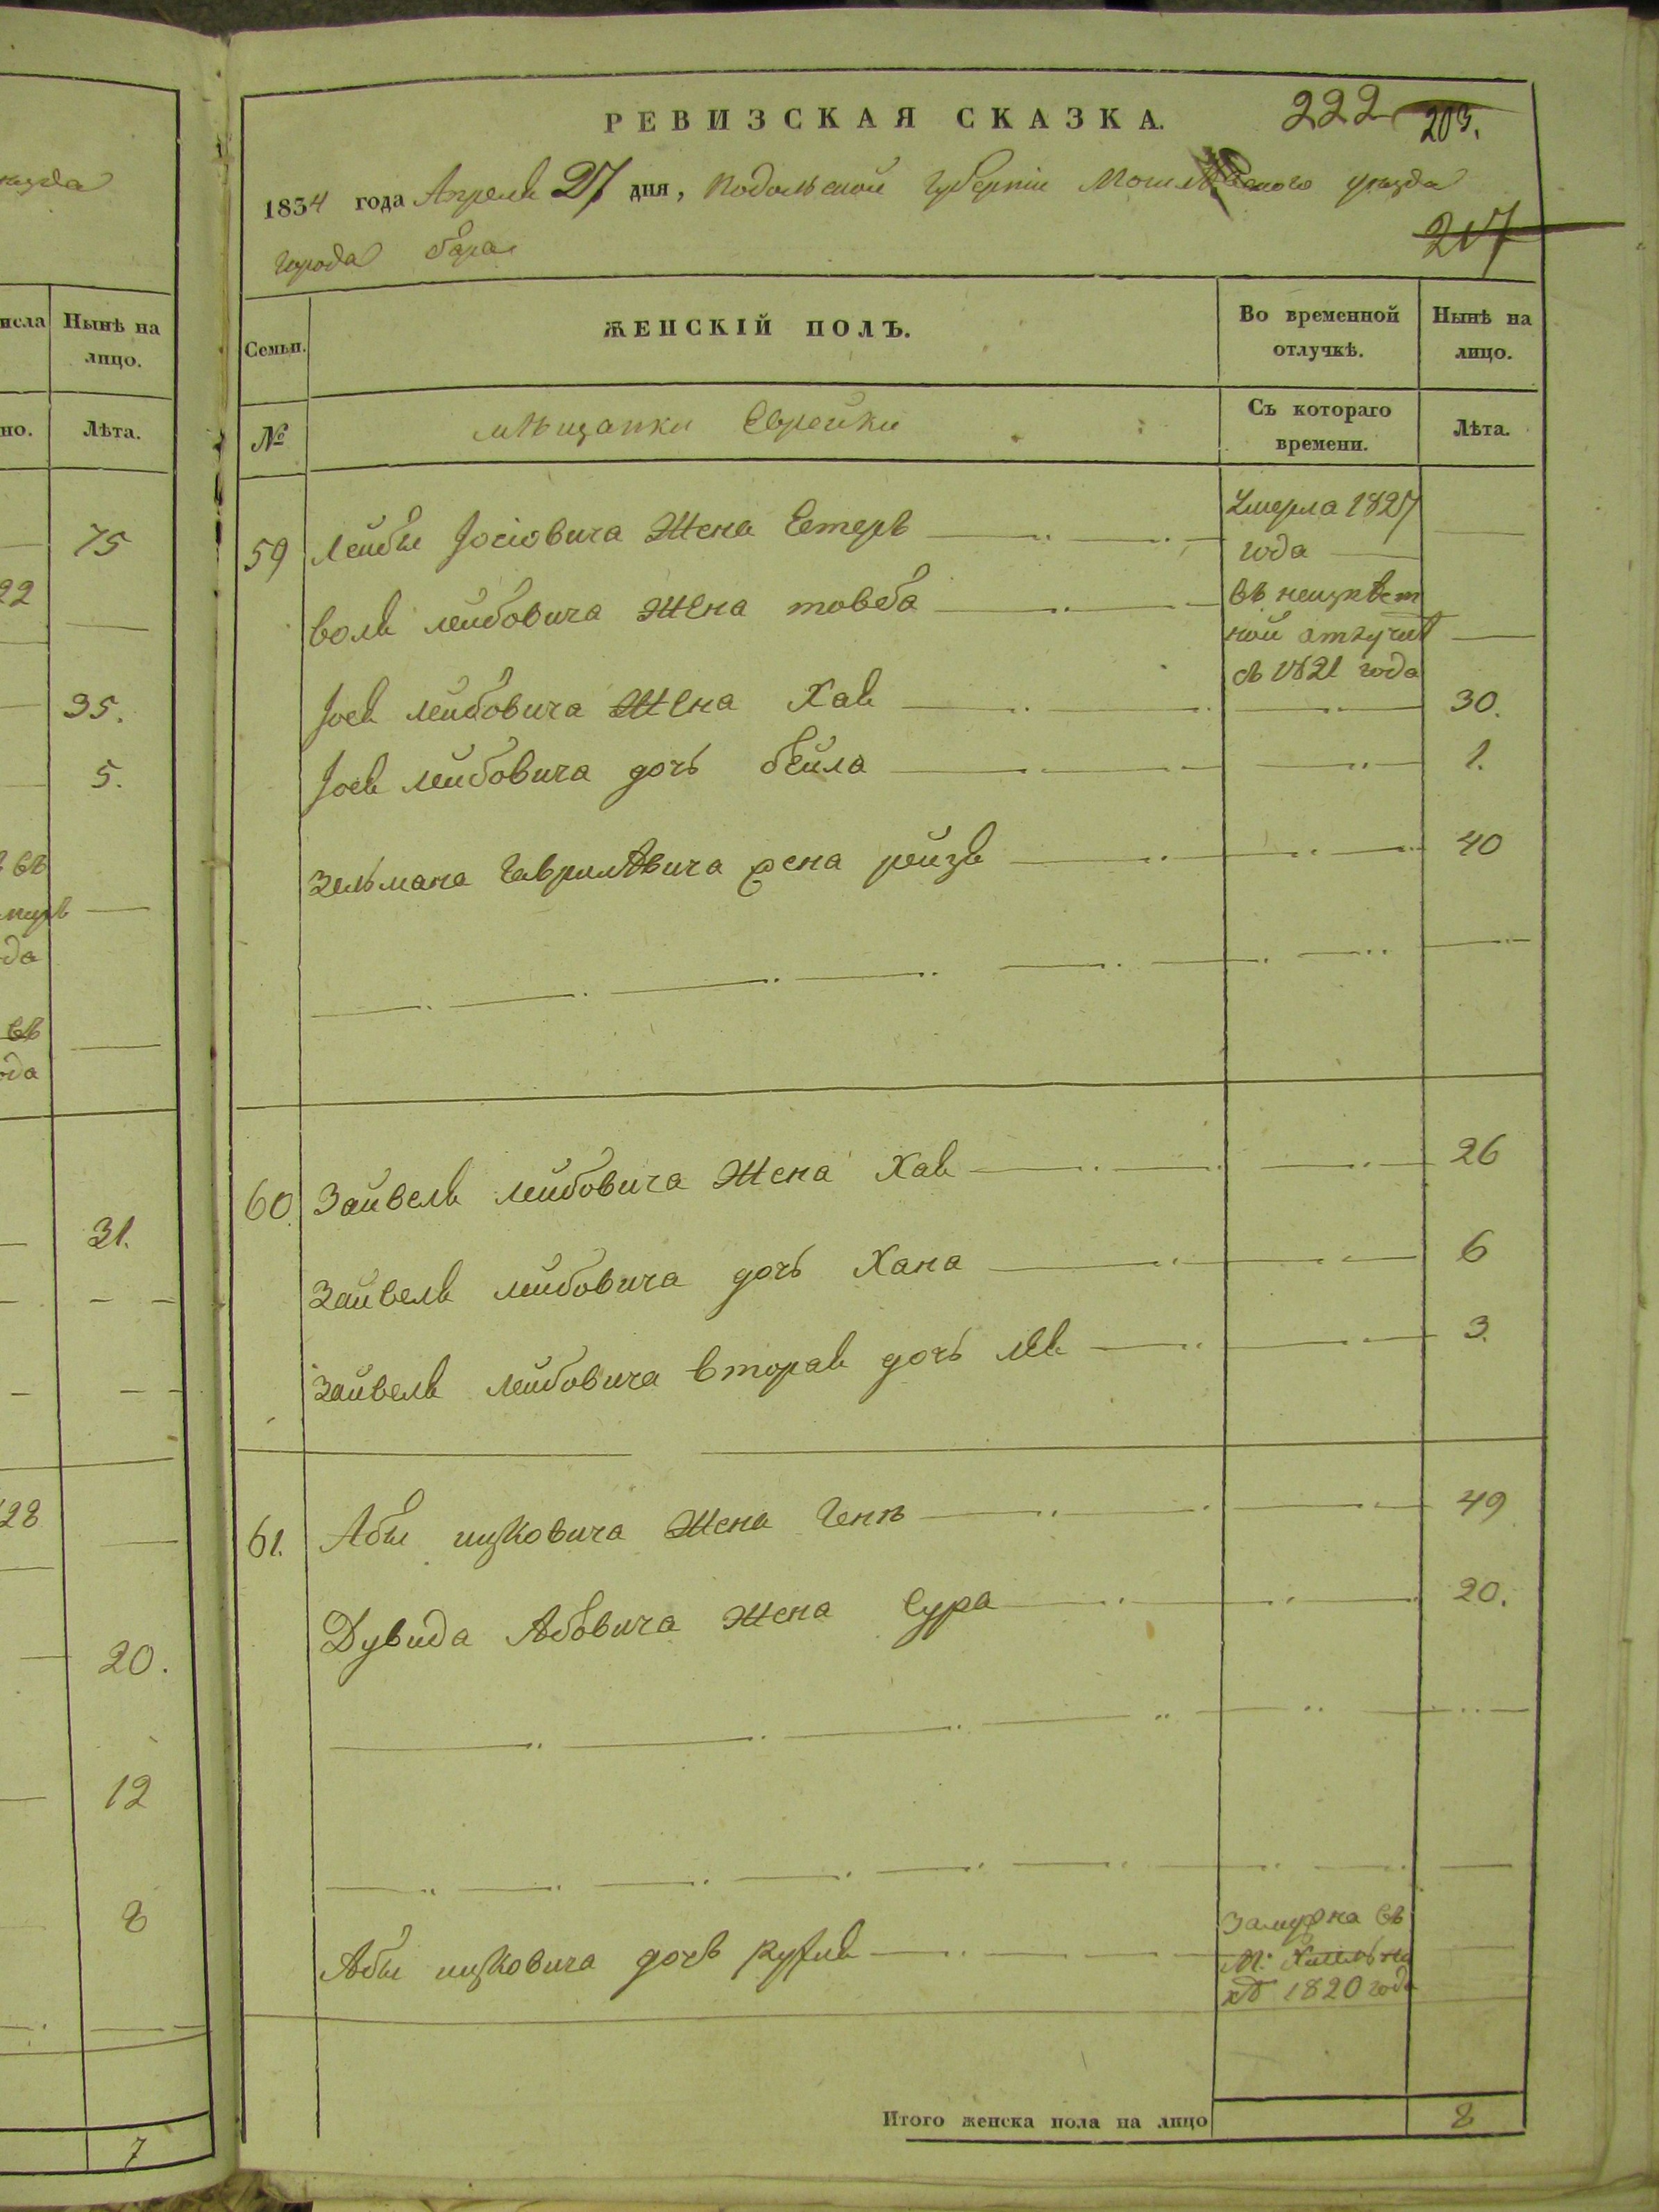 РЕВИЗСКАЯ СКАЗКА.
222
203.
1834 года Апреля 27 дня, Подольской Губерніи уезда
217
города бара
Семьи.
ЖЕНСКІЙ ПОЛЪ.
Во временной отлучкѣ.
Нынѣ на лицо.
№
мѣщанки Еврейки
Съ котораго времени.
Лѣта.
59 Лейбы Іосіовича Жена Естеръ
Умерла 1827 года
воля лейбовича Жена товба
въ неизвѣстной отлучкѣ съ 1821 года
Іося лейбовича Жена Хая 30.
Іося лейбовича дочь бейла 1.
Зельмана жена рейзя 40
60 Зайвеля лейбовича Жена Хая 26
Зайвеля лейбовича дочь Хана 6
Зайвеля лейбовича вторая дочь лѣя 3.
61. Абы ицковича Жена Геня 49
Дувида Абовича Жена Сура 20.
Абы ицковича дочь
Замужна въ
М:
1820 года
Итого женска пола на лицо 8
исла
Нынѣ на лицо.
но.
Лѣта.
75
22
35.
5.
въ
да
въ
ода
31.
28
20.
12
8
7